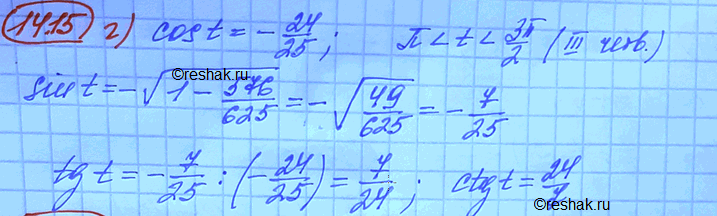 14.15 г) cos t = -24/25; π < t < 3π/2 (III четв.)
©reshak.ru
sin t = -√(1 - 576/625) = -√(49/625) = -7/25
tg t = -7/25 : (-24/25) = 7/24; ctg t = 24/7
©reshak.ru